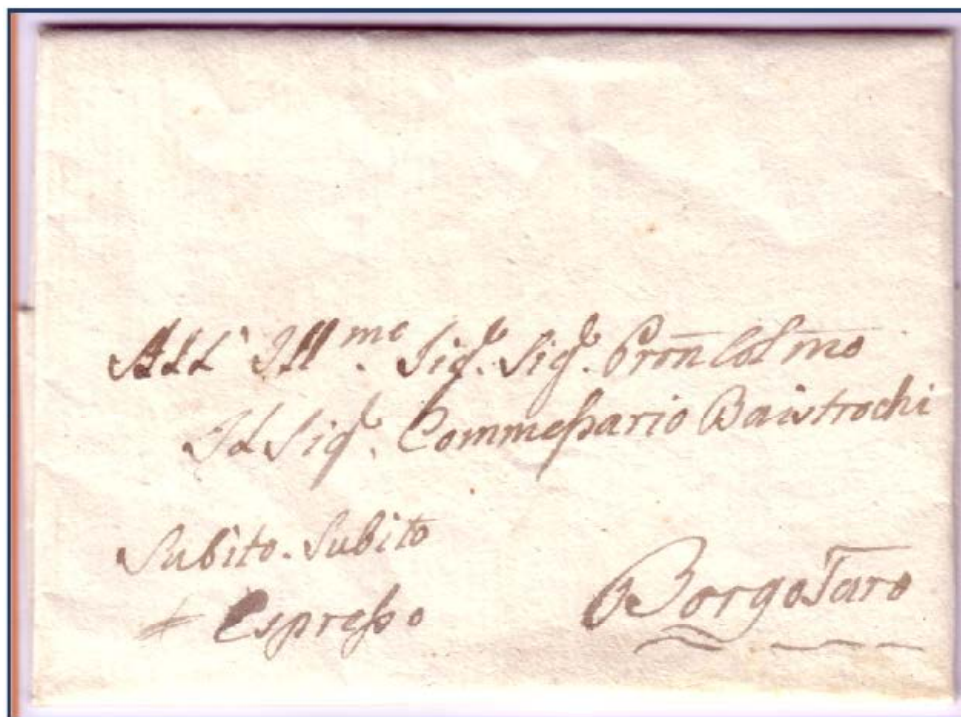 All' Ill.me Sig.r Sig.r Pron Col.mo
Il Sig.r Commessario Baistrochi
Subito. Subito
Espresso
BorgoTaro